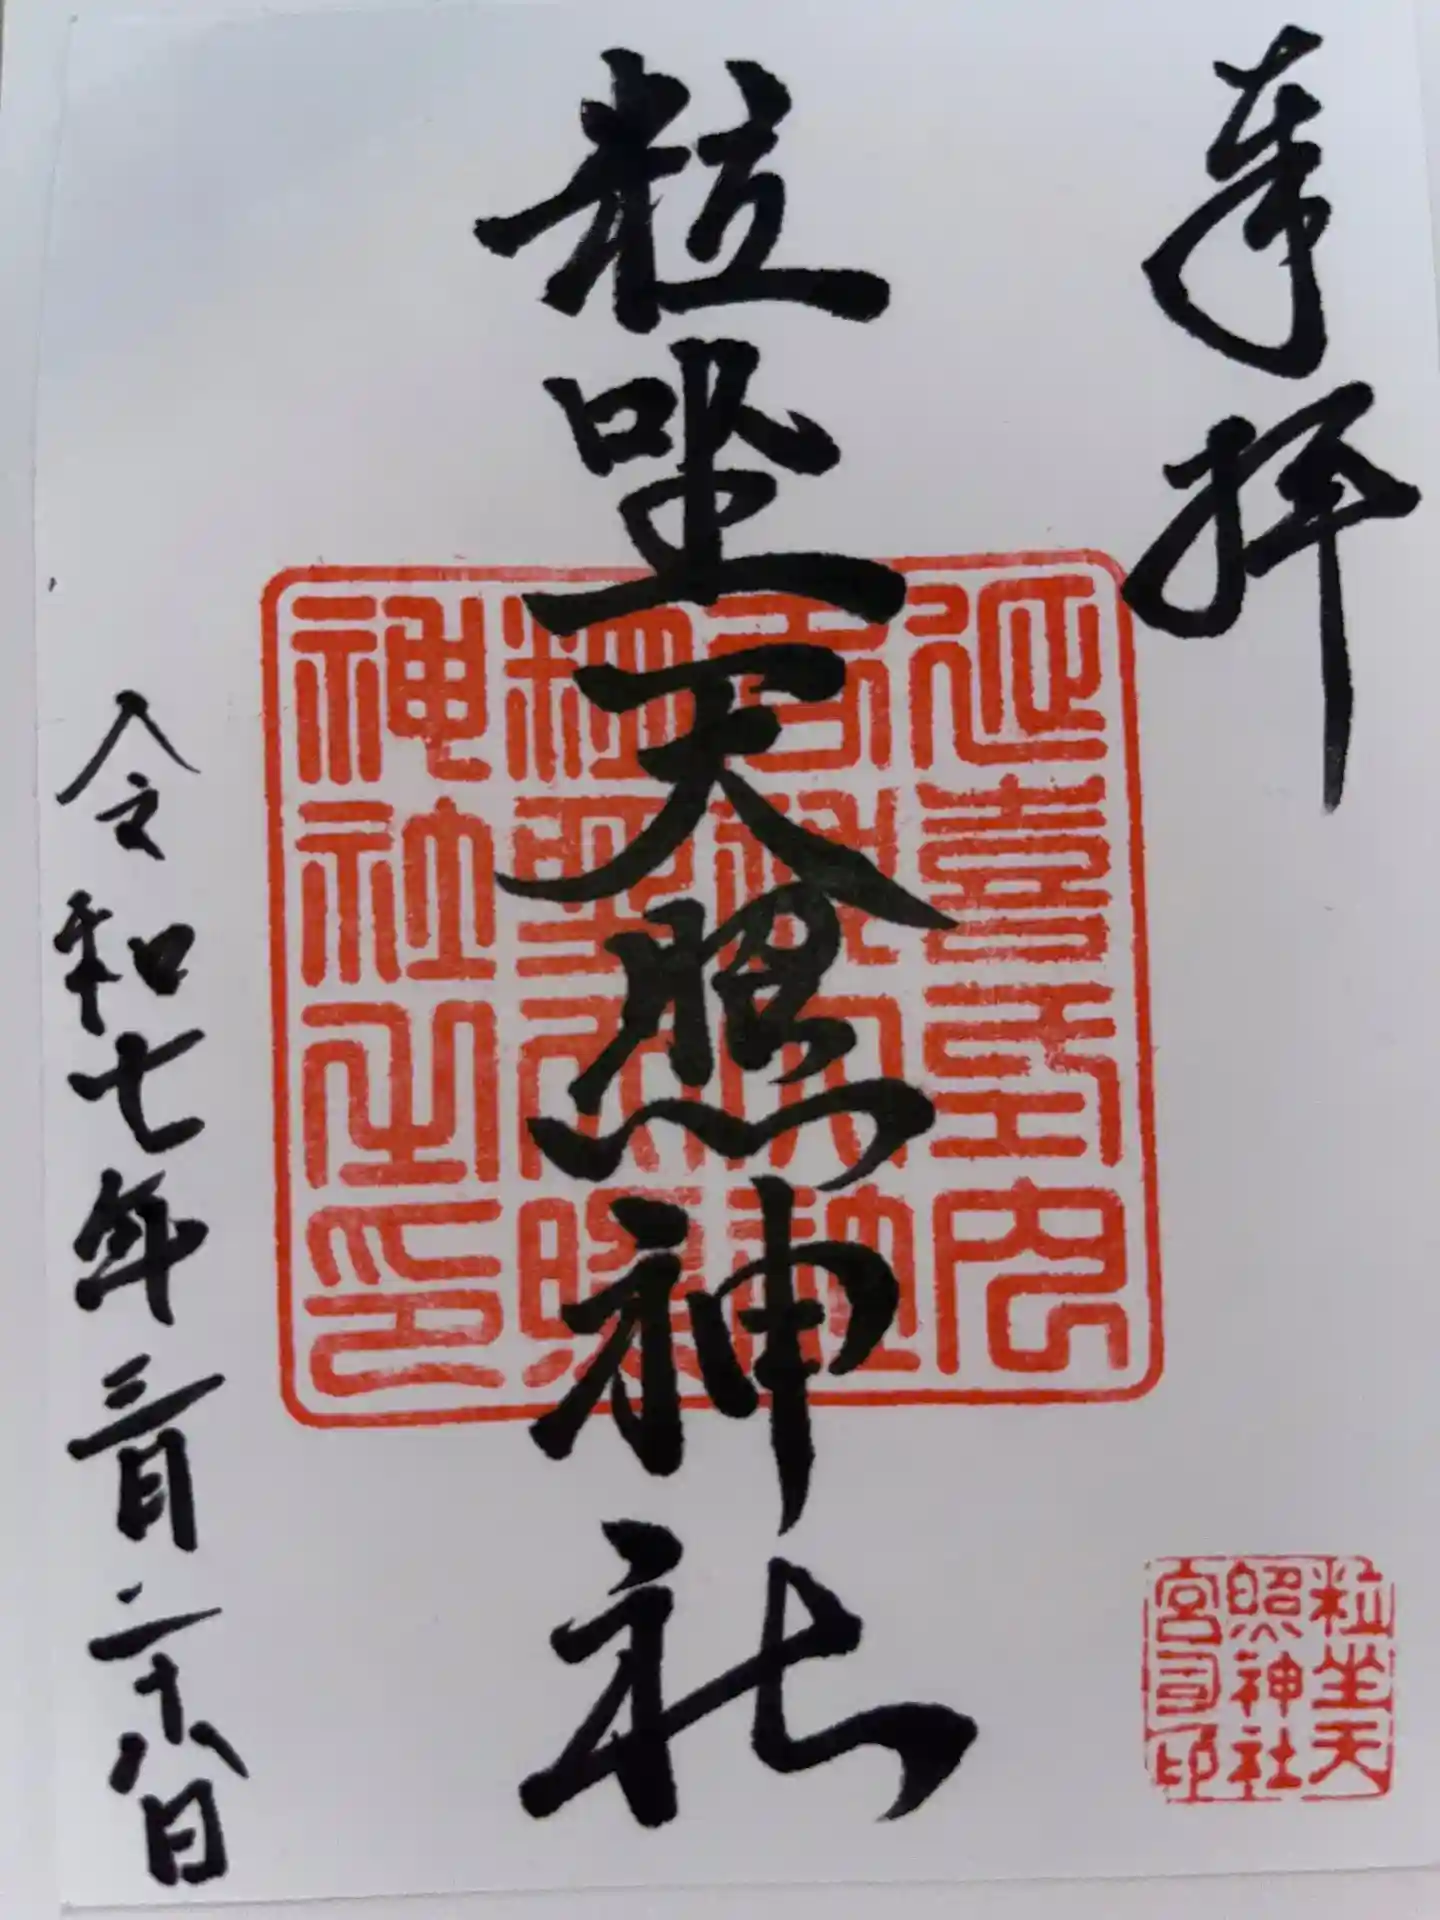 奉拝
粒坐天照神社
令和七年三月二十八日
延喜式内
名神大社
粒坐天照
神社之印
粒坐天
照神社
宮司印